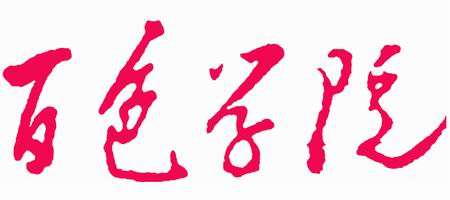 百色学院